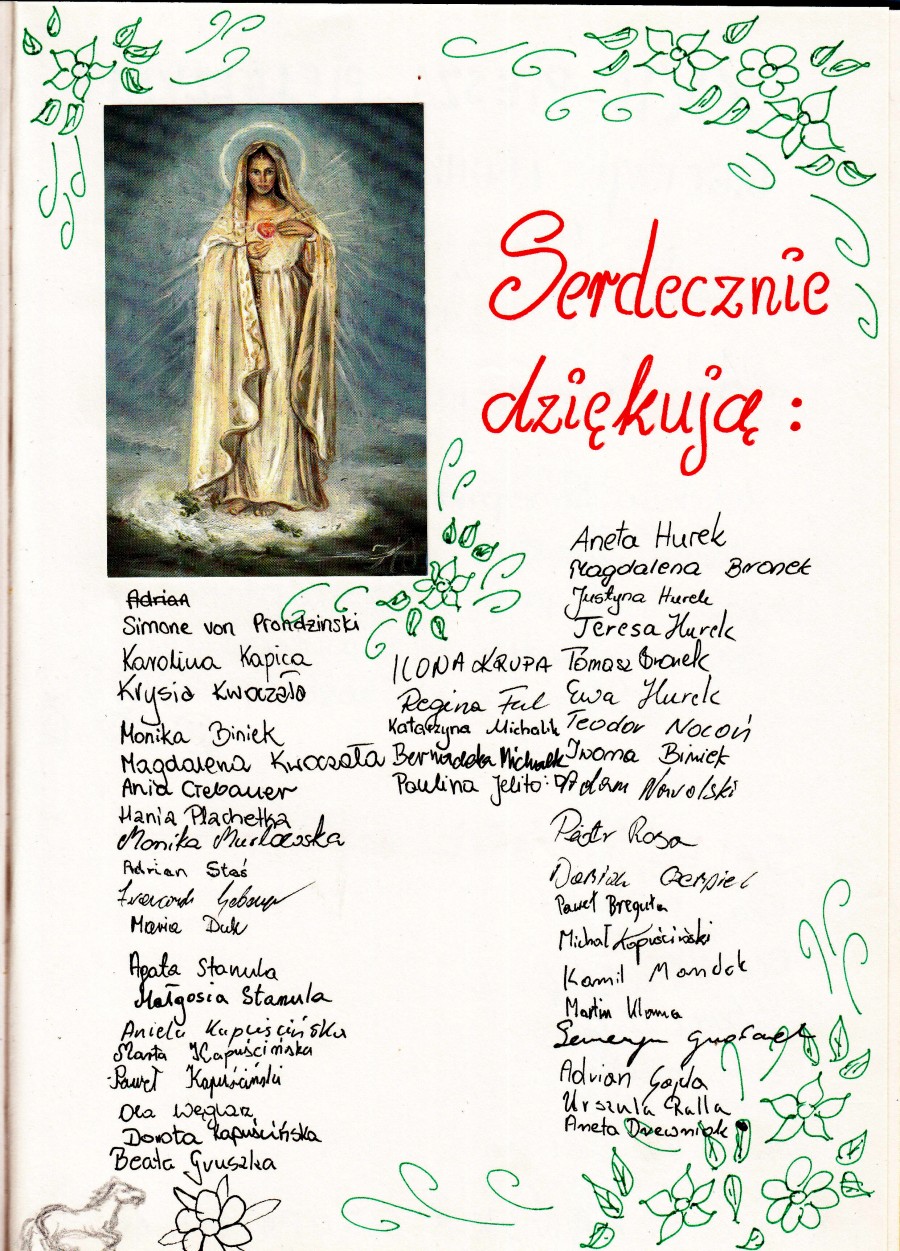 Serdecznie
dziękują :
Adrian
Simone von Prondzinski
Karolina Kapica
Krysia Kwoczała
Monika Biniek
Magdalena Kwoczała
Ania Grebauer
Hania Plachetka
Monika Murlowska
Adrian Staś
Maria Duk
Agata Stanula
Małgosia Stanula
Aniela Kapuścińska
Marta Kapuścińska
Paweł Kapuściński
Ola Węglarz
Dorota Kapuścińska
Beata Gruszka
ILONA KRUPA
Regina Ful
Katarzyna Michalik
Bernadeta Michalik
Paulina Jelito :D
Aneta Hurek
Magdalena Bronek
Justyna Hurek
Teresa Hurek
Tomasz Bronek
Ewa Hurek
Teodor Nocoń
Iwona Biniek
Adam Nowolski
Piotr Rosa
Damian Czerpiel
Paweł Breguła
Michał Kapuściński
Kamil Mandok
Martin Klama
Seweryn
Adrian Gajda
Urszula Ralla
Aneta Drzewniok